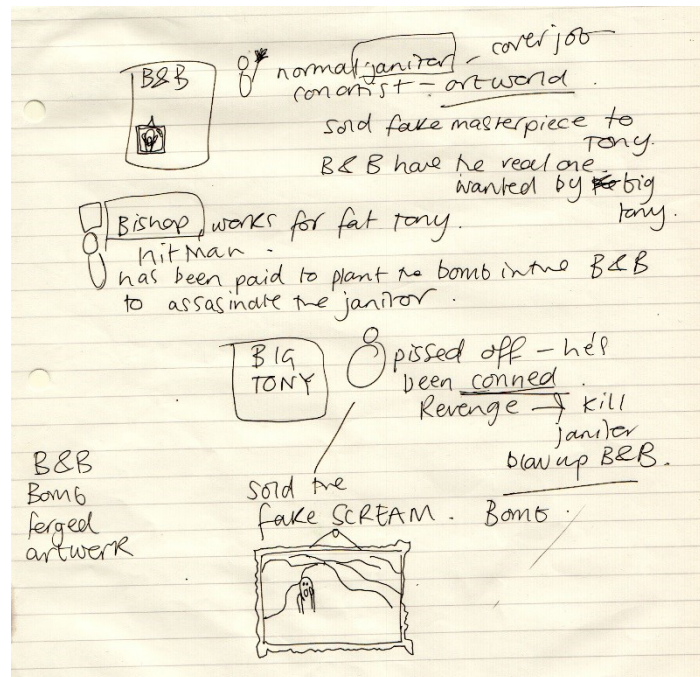 B&B
normal janitor - cover job
conartist - artworld.
sold fake masterpiece to
Tony.
B&B have the real one.
wanted by big
tony.
Bishop, works for fat tony.
hitman.
has been paid to plant the bomb in the B&B
to assasinate the janitor.
BIG
TONY
pissed off - he's
been conned.
Revenge → kill
janitor
blow up B&B.
Bomb.
sold the
fake SCREAM.
B&B
Bomb
forged
artwork